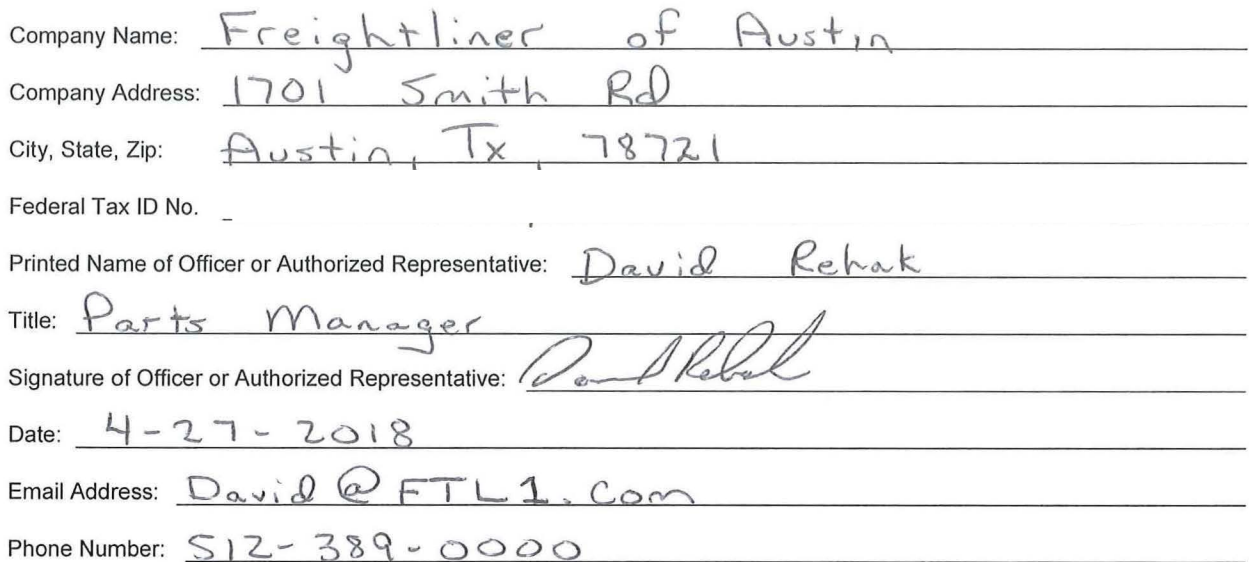 Company Name: Freightliner of Austin
Company Address: 1701 Smith Rd
City, State, Zip: Austin, Tx, 78721
Federal Tax ID No.
Printed Name of Officer or Authorized Representative: David Rehak
Title: Parts Manager
Signature of Officer or Authorized Representative: David Rehak
Date: 4-27-2018
Email Address: David@FTL1.Com
Phone Number: 512-389-0000